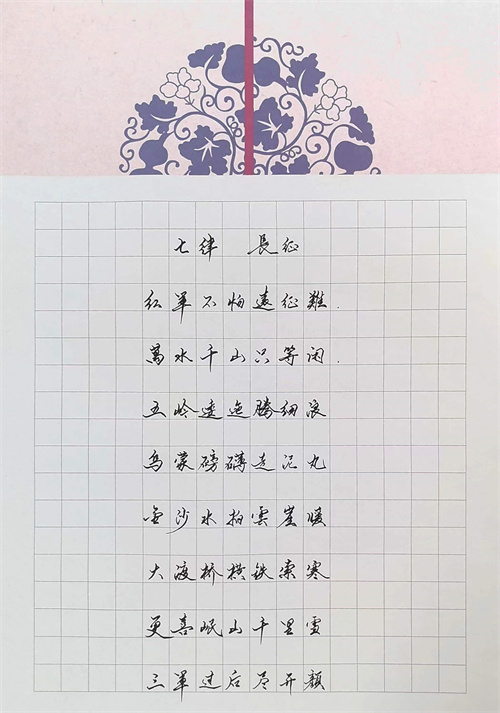 七律 長征
红军不怕遠征難.
萬水千山只等闲.
五岭逶迤腾细浪
乌蒙磅礴走泥丸
金沙水拍雲崖暖
大渡桥横铁索寒
更喜岷山千里雪
三軍过后尽开颜